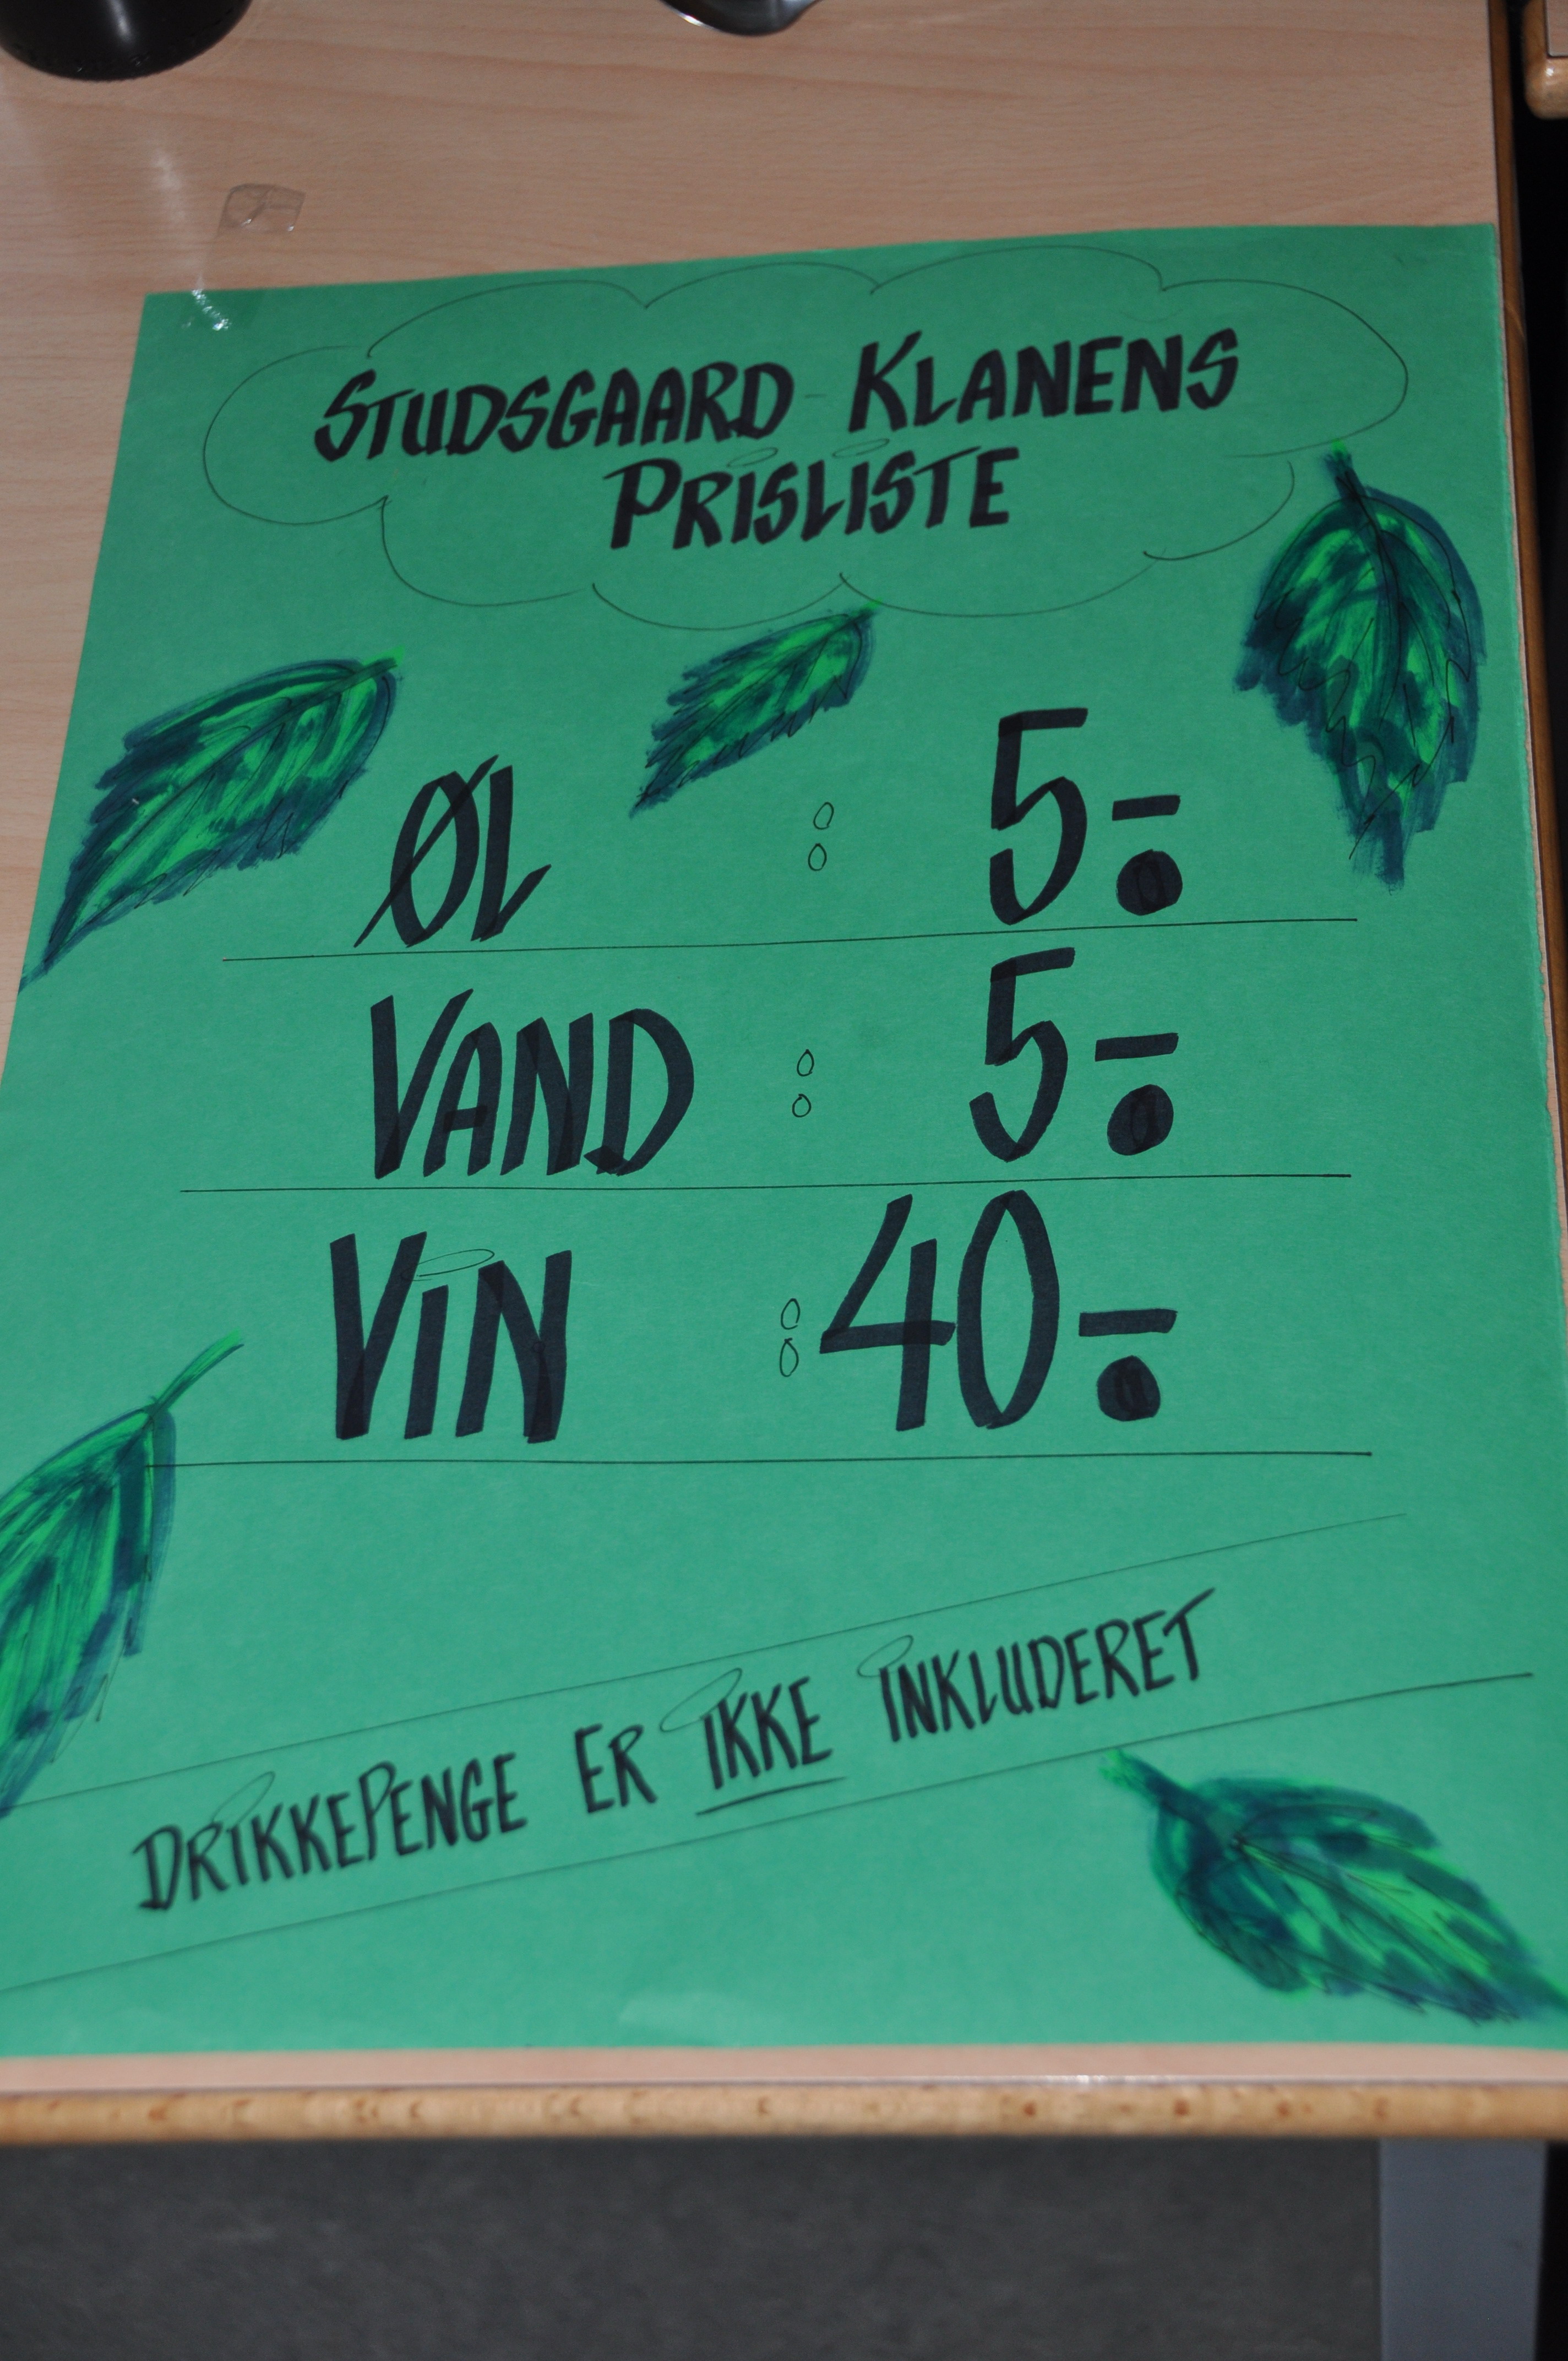 STUDSGAARD - KLANENS
PRISLISTE
ØL : 5.-
VAND : 5.-
VIN : 40.-
DRIKKEPENGE ER IKKE INKLUDERET